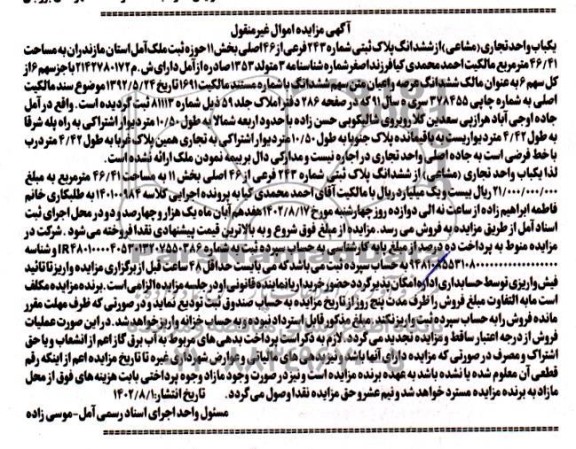 آگهی مزایده اموال غیرمنقول
یکباب واحد تجاری (مشاعی) از ششدانگ پلاک ثبتی شماره ۲۴۳ فرعی از ۴۶ اصلی بخش ۱۱ حوزه ثبت ملک آمل استان مازندران به مساحت
۴۶/۴۱ مترمربع مالکیت احمد محمدی کیا فرزند اصغر شماره شناسنامه ۳ متولد ۱۳۵۳ صادره از آمل دارای ش.م ۲۱۴۲۷۸۰۱۷۲ با جز سهم ۶ از
کل سهم ۶ به عنوان مالک ششدانگ عرصه و اعیان متن سهم ششدانگ با شماره مستند مالکیت ۱۶۹۱ تاریخ ۱۳۹۲/۵/۲۴ موضوع سند مالکیت
اصلی به شماره چاپی ۳۷۸۴۵۵ سری ه سال ۹۱ که در صفحه ۲۸۶ دفتر املاک جلد ۵۹ ذیل شماره ۸۱۱۱۳ ثبت گردیده است. واقع در آمل
جاده اوجی آباد هرازپی سعدین کلا روبروی شالیکوبی حسن زاده با حدود اربعه شمالا به طول ۱۰/۵۰ متر دیوار اشتراکی به راه پله شرقا
به طول ۴/۴۲ متر دیواریست به باقیمانده پلاک جنوبا به طول ۱۰/۵۰ متر دیوار اشتراکی به تجاری همین پلاک غربا به طول ۴/۴۲ متر درب
با خط فرضی است به جاده اصلی واحد تجاری در اجاره نیست و مدارکی دال بر بیمه نمودن ملک ارائه نشده است.
لذا یکباب واحد تجاری (مشاعی) از ششدانگ پلاک ثبتی شماره ۲۴۳ فرعی از ۴۶ اصلی بخش ۱۱ به مساحت ۴۶/۴۱ مترمربع به مبلغ
۲۱/۰۰۰/۰۰۰/۰۰۰ ریال بیست و یک میلیارد ریال با مالکیت آقای احمد محمدی کیا به پرونده اجرایی کلاسه ۱۴۰۱۰۰۹۸۴ به طلبکاری خانم
فاطمه ابراهیم زاده از ساعت نه الی دوازده روز چهارشنبه مورخ ۱۴۰۲/۸/۱۷ هفدهم آبان ماه یک هزار و چهارصد و دو در محل اجرای ثبت
اسناد آمل از طریق مزایده به فروش می رسد. مزایده از مبلغ فوق شروع و به بالاترین قیمت پیشنهادی نقدا فروخته می شود. شرکت در
مزایده منوط به پرداخت ده درصد از مبلغ پایه کارشناسی به حساب سپرده ثبت به شماره و شناسه
به حساب سپرده ثبت می باشد که می بایست حداقل ۴۸ ساعت قبل از برگزاری مزایده واریز تا تائید
فیش واریزی توسط حسابداری اداره امکان پذیر گردد حضور خریدار یا نماینده قانونی او در جلسه مزایده الزامی است. برنده مزایده مکلف
است مابه التفاوت مبلغ فروش را ظرف مدت پنج روز از تاریخ مزایده به حساب صندوق ثبت تودیع نماید و در صورتی که ظرف مهلت مقرر
مانده فروش را به حساب سپرده ثبت واریز نکند مبلغ مذکور قابل استرداد نبوده و به حساب خزانه واریز خواهد شد. در این صورت عملیات
فروش از درجه اعتبار ساقط و مزایده تجدید می گردد. لازم به ذکر است پرداخت بدهی های مربوط به آب برق گاز اعم از انشعاب و یا حق
اشتراک و مصرف در صورتی که مزایده دارای آنها باشد و نیز بدهی های مالیاتی و عوارض شهرداری غیره تا تاریخ مزایده اعم از اینکه رقم
قطعی آن معلوم شده یا نشده باشد به عهده برنده مزایده است و نیز در صورت وجود مازاد وجوه پرداختی بابت هزینه های فوق از محل
مازاد به برنده مزایده مسترد خواهد شد و نیم عشر و حق مزایده نقدا وصول می گردد. تاریخ انتشار: ۱۴۰۲/۸/۱
مسئول واحد اجرای اسناد رسمی آمل-موسی زاده